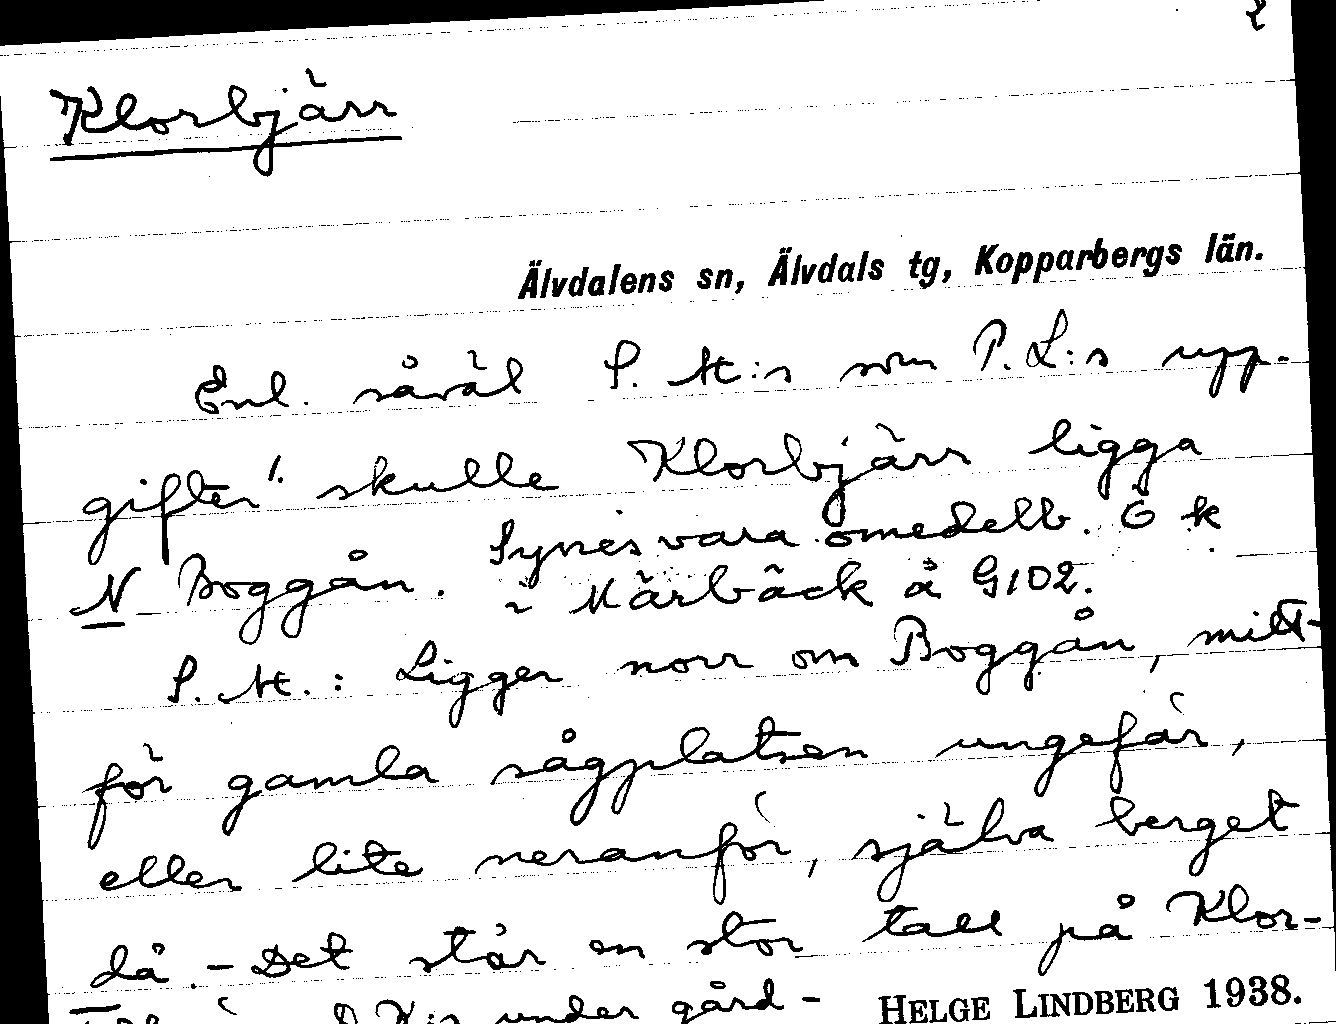 2
Klorbjärr
Älvdalens sn, Älvdals tg, Kopparbergs län.
Enl. såväl S. M:s som P. L:s upp-
gifter skulle Klorbjärr ligga
Synes vara omedelb. Ö k
N Boggån. i Märbäck å G102.
S. M.: Ligger norr om Boggån, mitt-
för gamla sågplatsen ungefär,
eller lite neranför, själva berget
då. - Det står en stor tall på Klor-
under gård-
HELGE LINDBERG 1938.